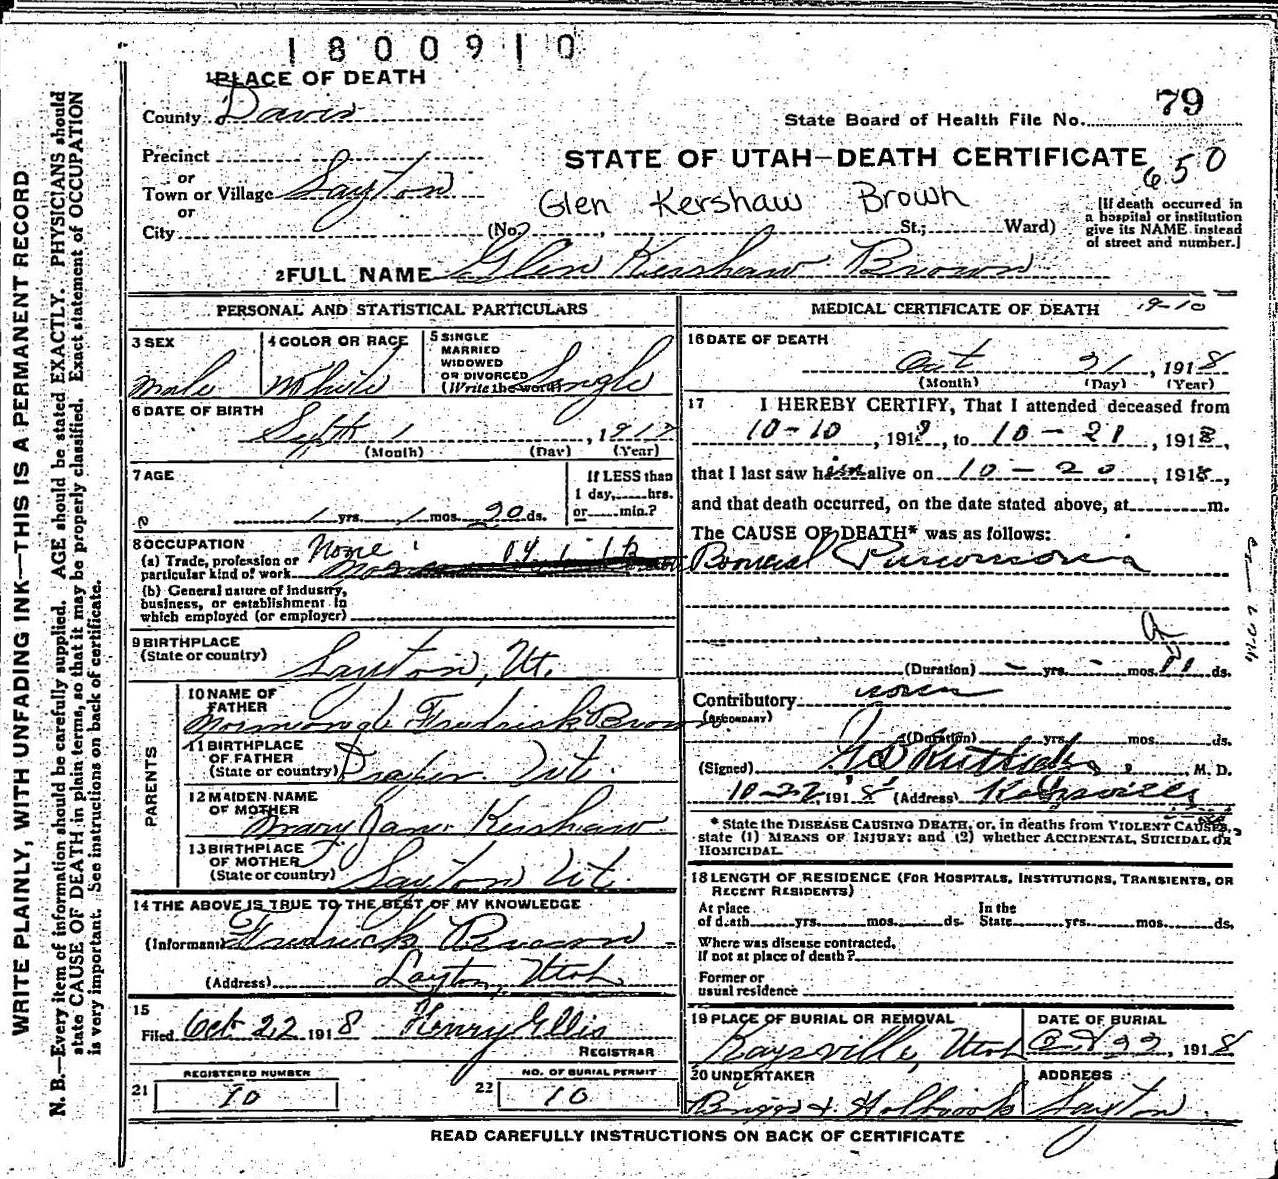 1 8 0 0 9 1 0
1 PLACE OF DEATH
County Davis
79
State Board of Health File No.
Precinct
or
Town or Village Layton
or
City
STATE OF UTAH—DEATH CERTIFICATE
650
Glen Kershaw Brown
(No. , St.; Ward)
[If death occurred in
a hospital or institution
give its NAME instead
of street and number.]
2 FULL NAME Glen Kershaw Brown
WRITE PLAINLY, WITH UNFADING INK—THIS IS A PERMANENT RECORD
N. B.—Every item of information should be carefully supplied. AGE should be stated EXACTLY. PHYSICIANS should
state CAUSE OF DEATH in plain terms, so that it may be properly classified. Exact statement of OCCUPATION
is very important. See instructions on back of certificate.
PERSONAL AND STATISTICAL PARTICULARS
3 SEX
Male
4 COLOR OR RACE
White
5 SINGLE
MARRIED
WIDOWED
OR DIVORCED
(Write the word) Single
6 DATE OF BIRTH
Sept 1, 1917
(Month) (Day) (Year)
7 AGE
1 yrs. 1 mos. 20 ds.
If LESS than
1 day, hrs.
or min.?
8 OCCUPATION
(a) Trade, profession or
particular kind of work None
(b) General nature of industry,
business, or establishment in
which employed (or employer)
9 BIRTHPLACE
(State or country) Layton, Ut.
PARENTS
10 NAME OF
FATHER
Fredrick Brown
11 BIRTHPLACE
OF FATHER
(State or country) Draper Ut.
12 MAIDEN NAME
OF MOTHER
Mary Jane Kershaw
13 BIRTHPLACE
OF MOTHER
(State or country) Layton Ut.
14 THE ABOVE IS TRUE TO THE BEST OF MY KNOWLEDGE
(Informant) Fredrick Brown
(Address) Layton, Utah
15
Filed Oct 22 1918 Henry Ellis
REGISTRAR
21 REGISTERED NUMBER
10
22 NO. OF BURIAL PERMIT
10
MEDICAL CERTIFICATE OF DEATH
16 DATE OF DEATH
Oct 21, 1918
(Month) (Day) (Year)
17 I HEREBY CERTIFY, That I attended deceased from
10-10, 1918, to 10-21, 1918,
that I last saw him alive on 10-20, 1918,
and that death occurred, on the date stated above, at m.
The CAUSE OF DEATH* was as follows:
Bronchial Pneumonia
(Duration) - yrs. - mos. 11 ds.
Contributory none
(SECONDARY)
(Duration) yrs. mos. ds.
(Signed) M. D.
10-22, 1918 (Address) Kaysville
* State the DISEASE CAUSING DEATH, or, in deaths from VIOLENT CAUSES,
state (1) MEANS OF INJURY; and (2) whether ACCIDENTAL, SUICIDAL OR
HOMICIDAL.
18 LENGTH OF RESIDENCE (FOR HOSPITALS, INSTITUTIONS, TRANSIENTS, OR
RECENT RESIDENTS)
At place In the
of death yrs. mos. ds. State yrs. mos. ds.
Where was disease contracted,
if not at place of death?
Former or
usual residence
19 PLACE OF BURIAL OR REMOVAL
Kaysville, Utah
DATE OF BURIAL
Oct 22, 1918
20 UNDERTAKER
Briggs & Holbrook
ADDRESS
Layton
READ CAREFULLY INSTRUCTIONS ON BACK OF CERTIFICATE